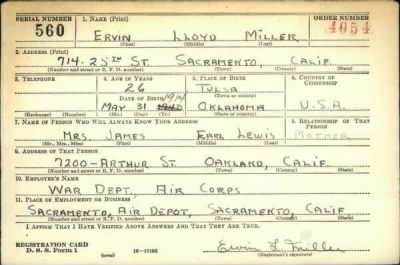 SERIAL NUMBER 1. NAME (Print) ORDER NUMBER
560 ERVIN LLOYD MILLER 4054
(First) (Middle) (Last)
2. ADDRESS (Print)
714-25TH ST. SACRAMENTO, CALIF.
(Number and street or R. F. D. number) (Town) (County) (State)
3. TELEPHONE 4. AGE IN YEARS 5. PLACE OF BIRTH 6. COUNTRY OF CITIZENSHIP
26 TULSA
DATE OF BIRTH 1914
MAY 31 OKLAHOMA U.S.A.
(Exchange) (Number) (Mo.) (Day) (Yr.) (State or country)
7. NAME OF PERSON WHO WILL ALWAYS KNOW YOUR ADDRESS 8. RELATIONSHIP OF THAT PERSON
MRS. JAMES EARL LEWIS MOTHER
(Mr., Mrs., Miss) (First) (Middle) (Last)
9. ADDRESS OF THAT PERSON
7200-ARTHUR ST. OAKLAND, CALIF.
(Number and street or R. F. D. number) (Town) (County) (State)
10. EMPLOYER'S NAME
WAR DEPT. AIR CORPS
11. PLACE OF EMPLOYMENT OR BUSINESS
SACRAMENTO, AIR DEPOT, SACRAMENTO, CALIF
(Number and street or R. F. D. number) (Town) (County) (State)
I AFFIRM THAT I HAVE VERIFIED ABOVE ANSWERS AND THAT THEY ARE TRUE.
REGISTRATION CARD
D. S. S. Form 1 (over) 16-17105 Ervin L. Miller
(Registrant's signature)